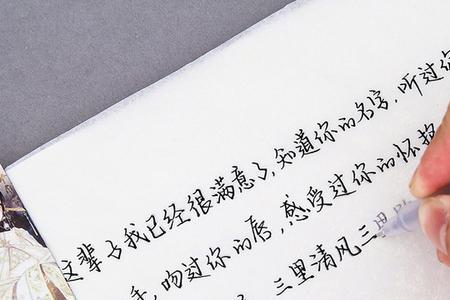 这辈子我已经很满意了，知道你的名字，听过你
，吻过你的唇，感受过你的怀抱
三里清风三里